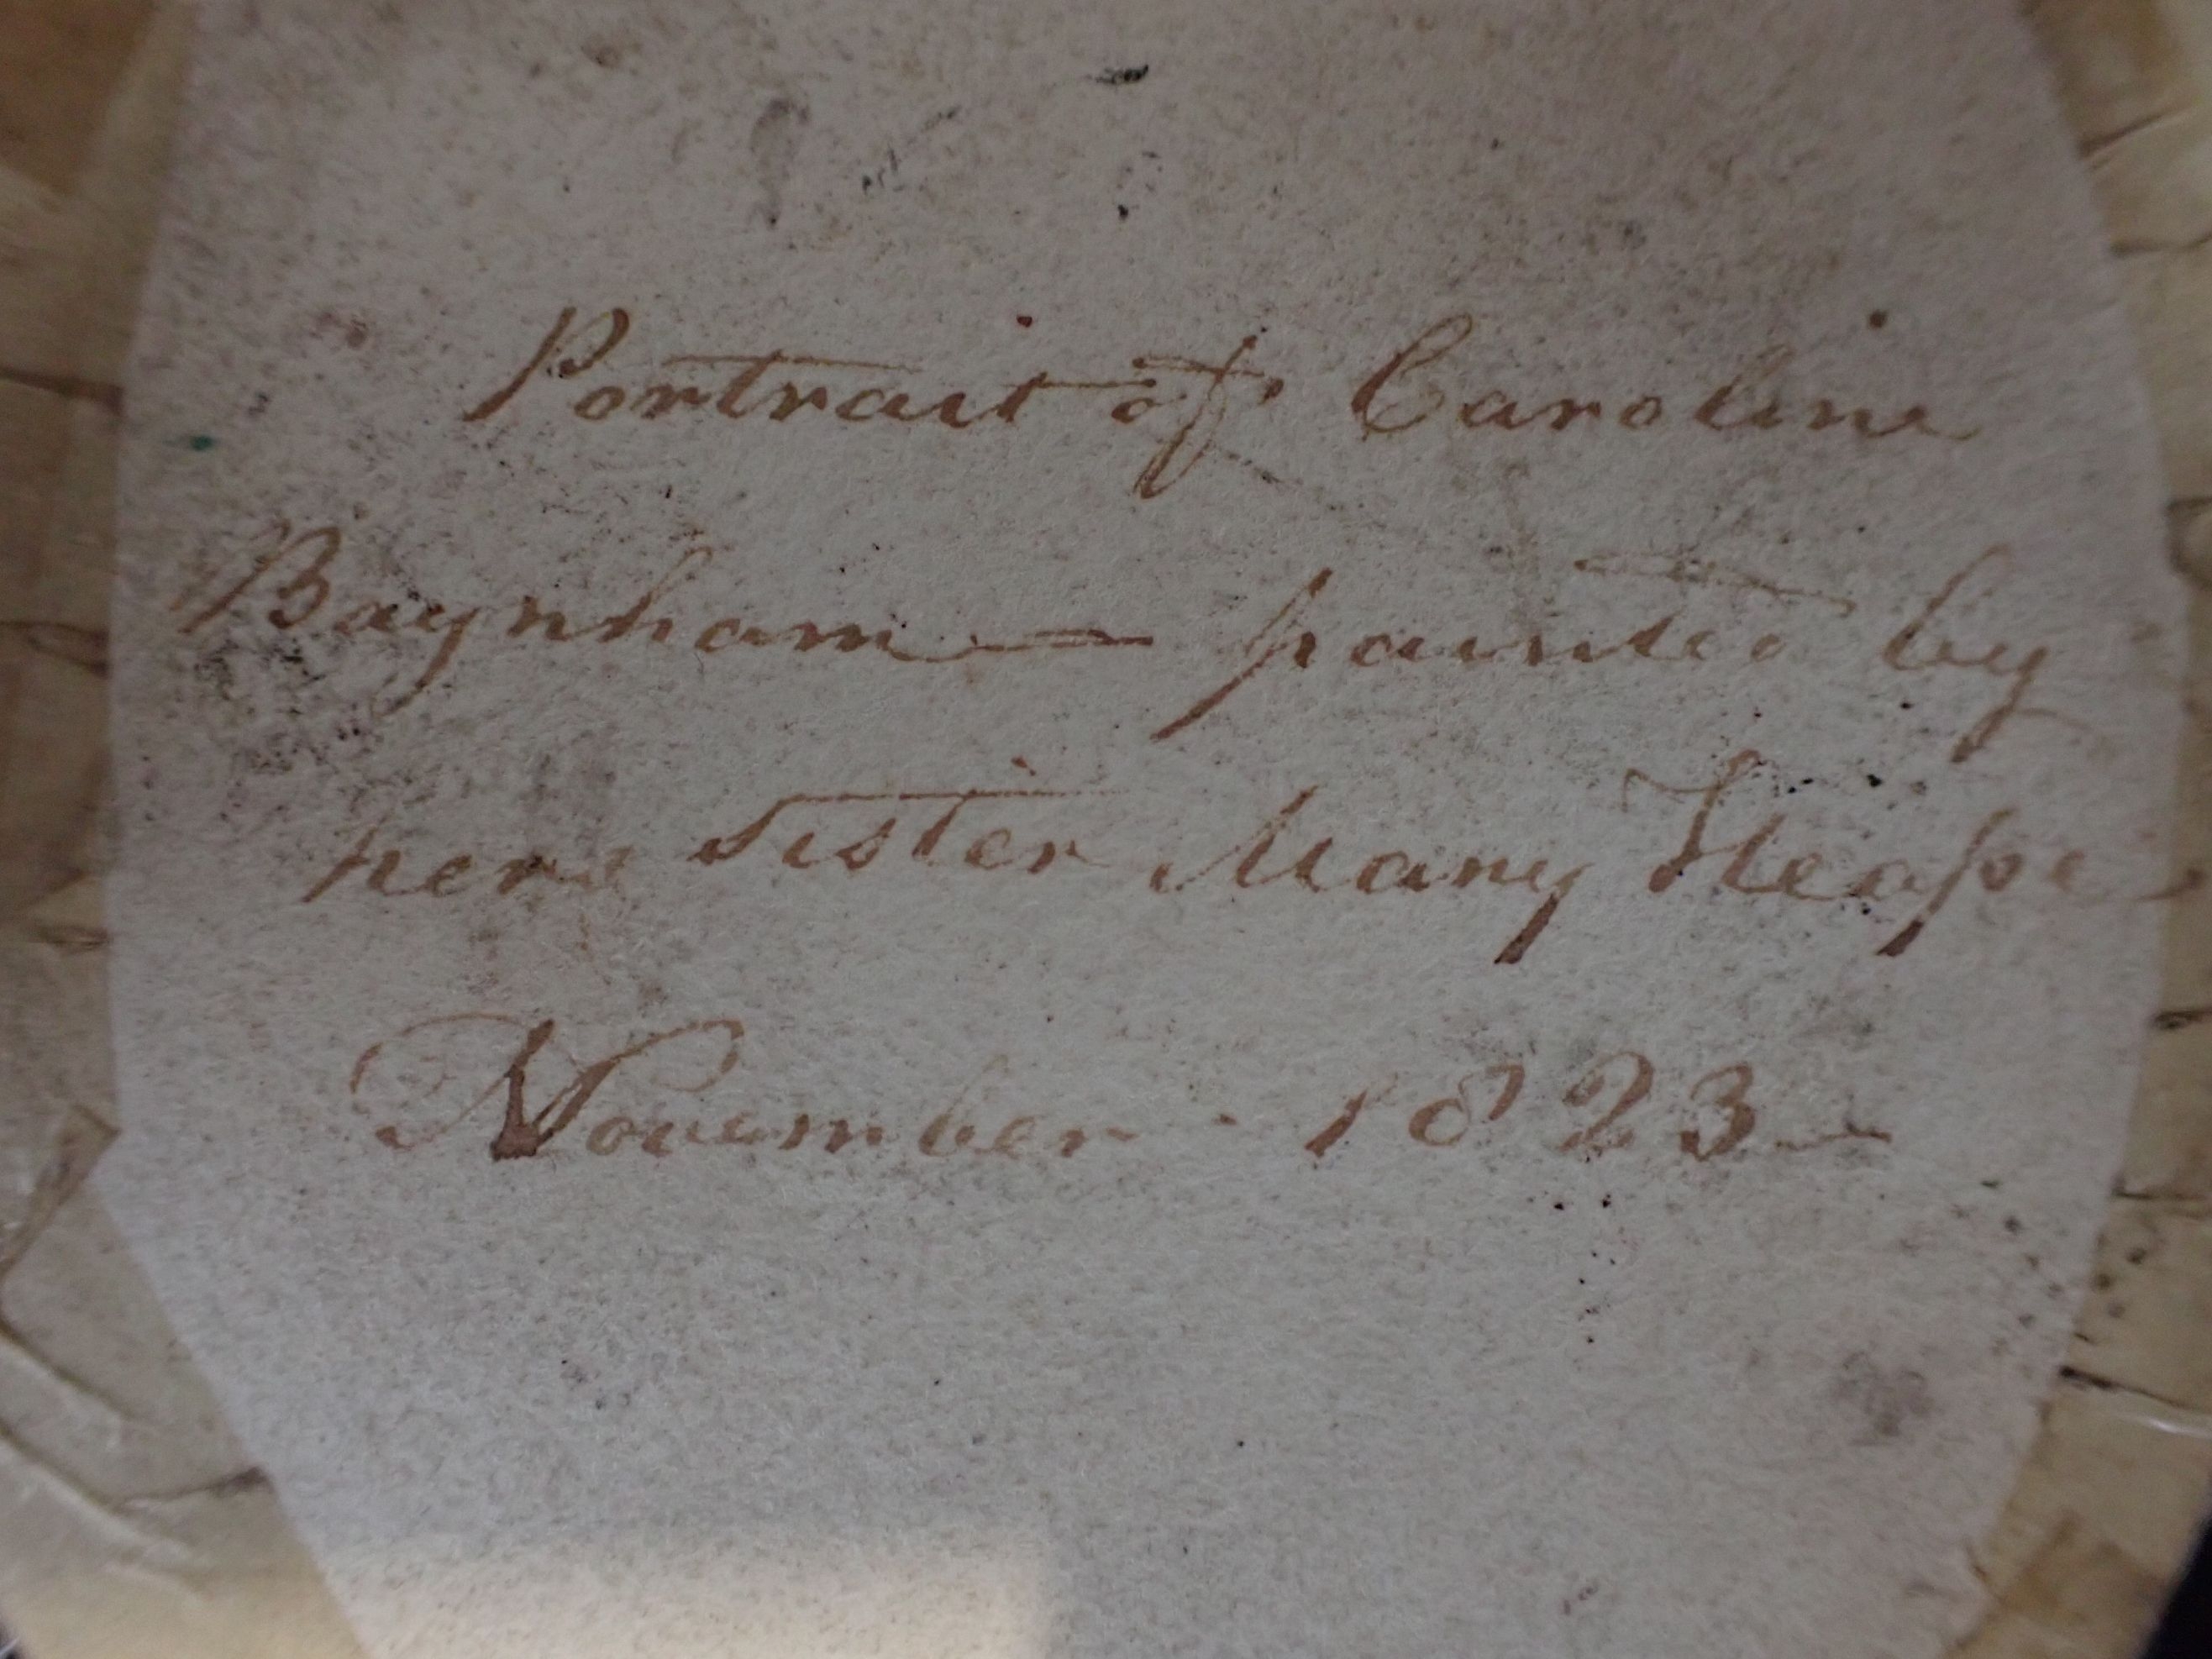 Portrait of Caroline
Baynham — painted by
her sister Mary Heape
November 1823 —